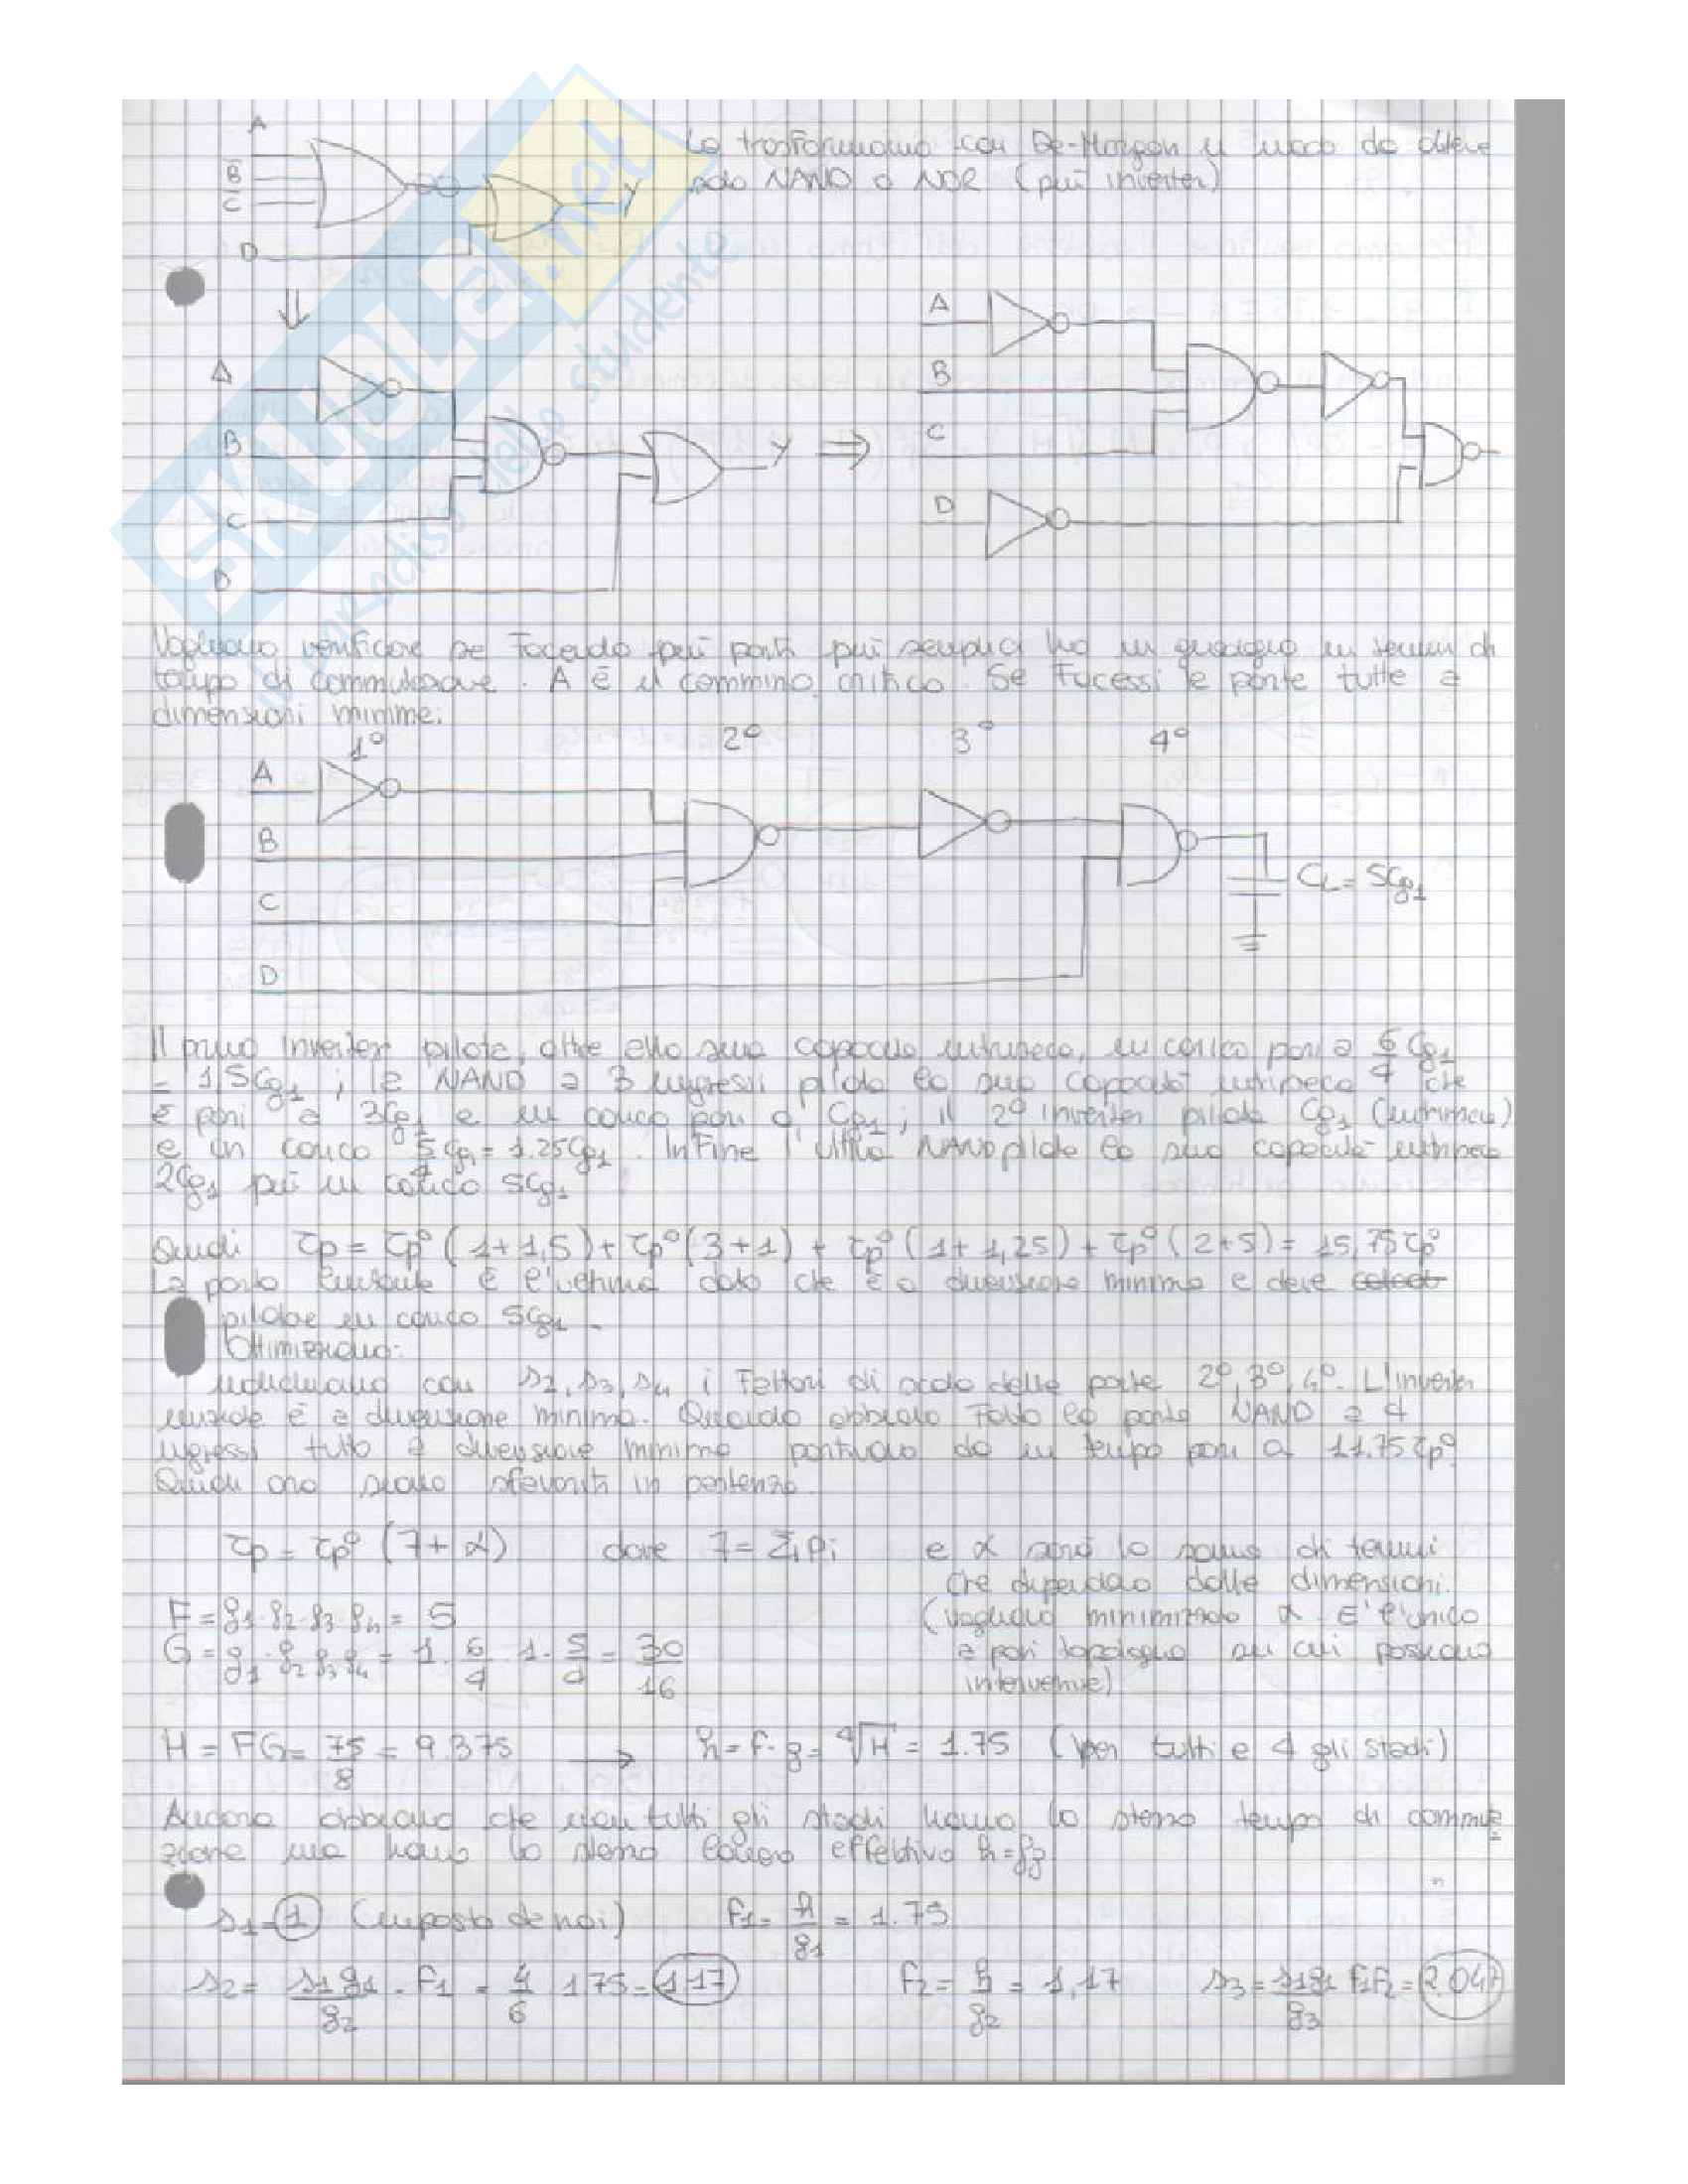 A
B̅
C̅
D
Y
Lo trasformiamo con De-Morgan in modo da ottenere
solo NAND o NOR (più inverter)
⇓
A
B
C
D
Y ⇒
A
B
C
D
Vogliamo verificare se facendo più porte più semplici ho un guadagno in termini di
tempo di commutazione. A è il cammino critico. Se facessi le porte tutte a
dimensioni minime:
1° 2° 3° 4°
A
B
C
D
CL = 5Cg1
Il primo inverter pilota, oltre alla sua capacità intrinseca, un carico pari a 6/4 Cg1
= 1,5Cg1 ; la NAND a 3 ingressi pilota la sua capacità intrinseca che
è pari a 3Cg1 e un carico pari a Cg1 ; il 2° inverter pilota Cg1 (intrinseca)
e un carico 5/4 Cg1 = 1.25Cg1 . Infine l'ultima NAND pilota la sua capacità intrinseca
2Cg1 più un carico 5Cg1
Quindi τp = τp° (1+1,5) + τp° (3+1) + τp° (1+1,25) + τp° (2+5) = 15,75 τp°
La porta è l'ultima dato che è a dimensione minima e deve
pilotare un carico 5Cg1 .
Ottimizziamo:
indichiamo con s2, s3, s4 i fattori di scala delle porte 2°, 3°, 4°. L'inverter
iniziale è a dimensione minima. Quando abbiamo fatto la porta NAND a 4
ingressi tutto a dimensione minima partivamo da un tempo pari a 11.75 τp°
Quindi ora siamo sfavoriti in partenza.
τp = τp° (7+α) dove 7 = Σi pi e α sarà la somma di termini
che dipendono dalle dimensioni.
F = f1·f2·f3·f4 = 5 (vogliamo minimizzare α. E' l'unico
G = g1·g2 g3 g4 = 1· 6/4 ·1· 5/4 = 30/16 a pari topologia su cui possiamo
intervenire)
H = FG = 75/8 = 9.375 → h = f·g = ⁴√H = 1.75 (per tutti e 4 gli stadi)
Ancora abbiamo che non tutti gli stadi hanno lo stesso tempo di commuta
zione ma hanno lo stesso effettivo h=fg
s1 = 1 (imposto da noi) f1 = h/g1 = 1.75
s2 = s1g1/g2 · f1 = 4/6 1.75 = 1.17 f2 = h/g2 = 1,17 s3 = s1g1/g3 f1f2 = 2.047